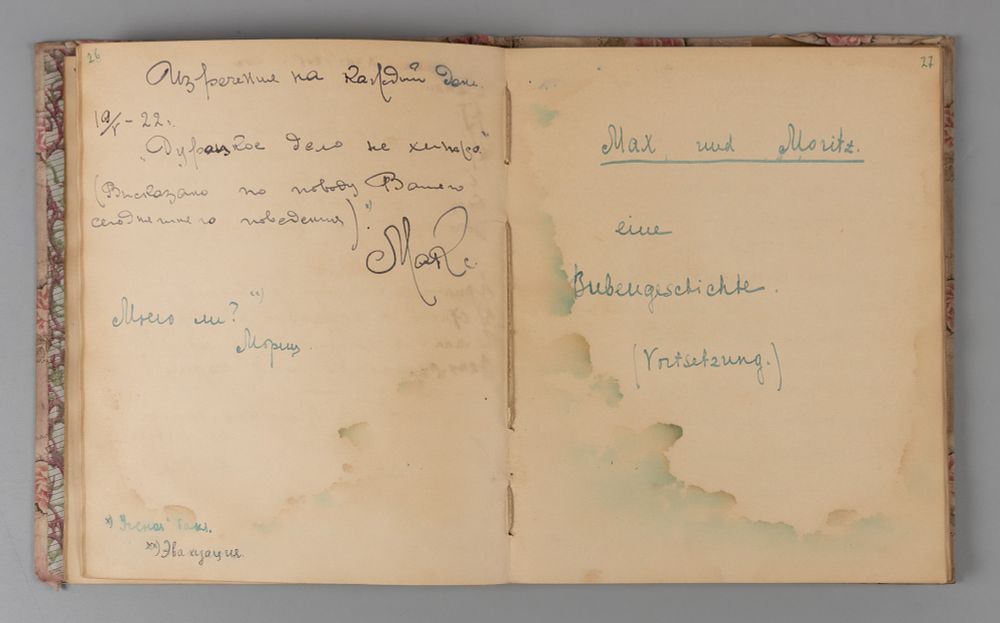 26
Изречение на каждий день.
19/V - 22 г.
„Дурацкое дело не хитро"
(Высказано по поводу Вашего
сегодняшнего поведения) *)
Макс.
Много ли? **)
Мориц.
*) баня.
**) Эвакуация.
27
Max und Moritz.
eine
Bubengeschichte.
(Vortsetzung.)